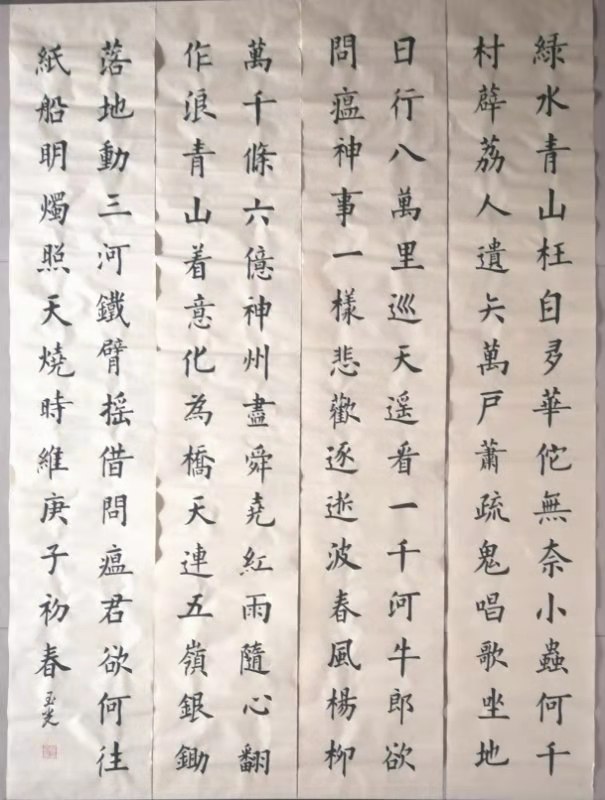 綠水青山枉自多華佗無奈小蟲何千
村薜荔人遺矢萬戶蕭疏鬼唱歌坐地
日行八萬里巡天遥看一千河牛郎欲
問瘟神事一樣悲歡逐逝波春風楊柳
萬千條六億神州盡舜堯紅雨隨心翻
作浪青山着意化為橋天連五嶺銀鋤
落地動三河鐵臂摇借問瘟君欲何往
紙船明燭照天燒時維庚子初春
玉光